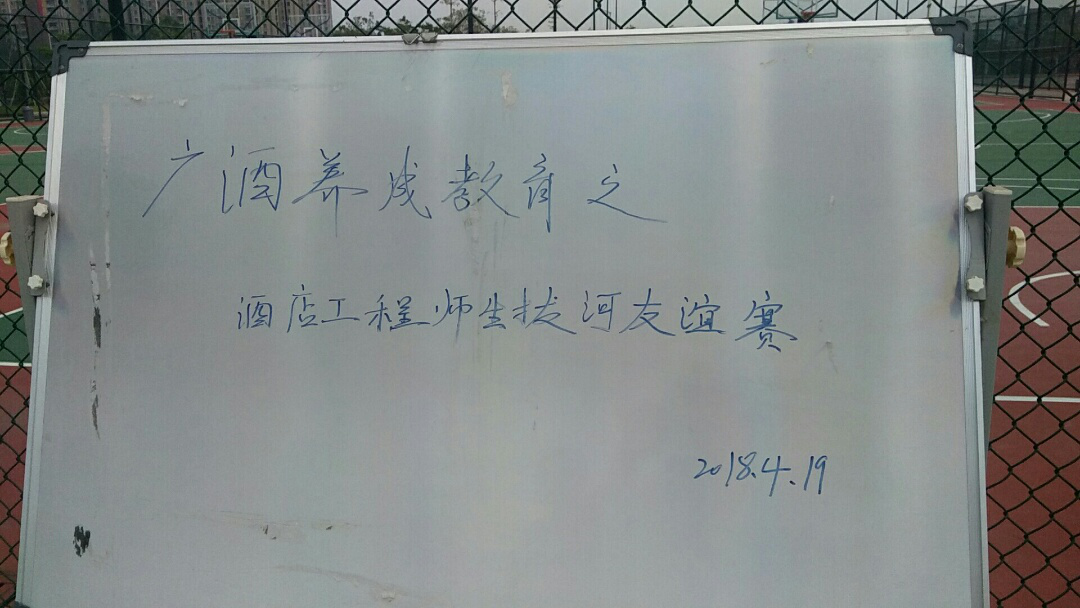 广酒养成教育之
酒店工程师生拔河友谊赛
2018.4.19